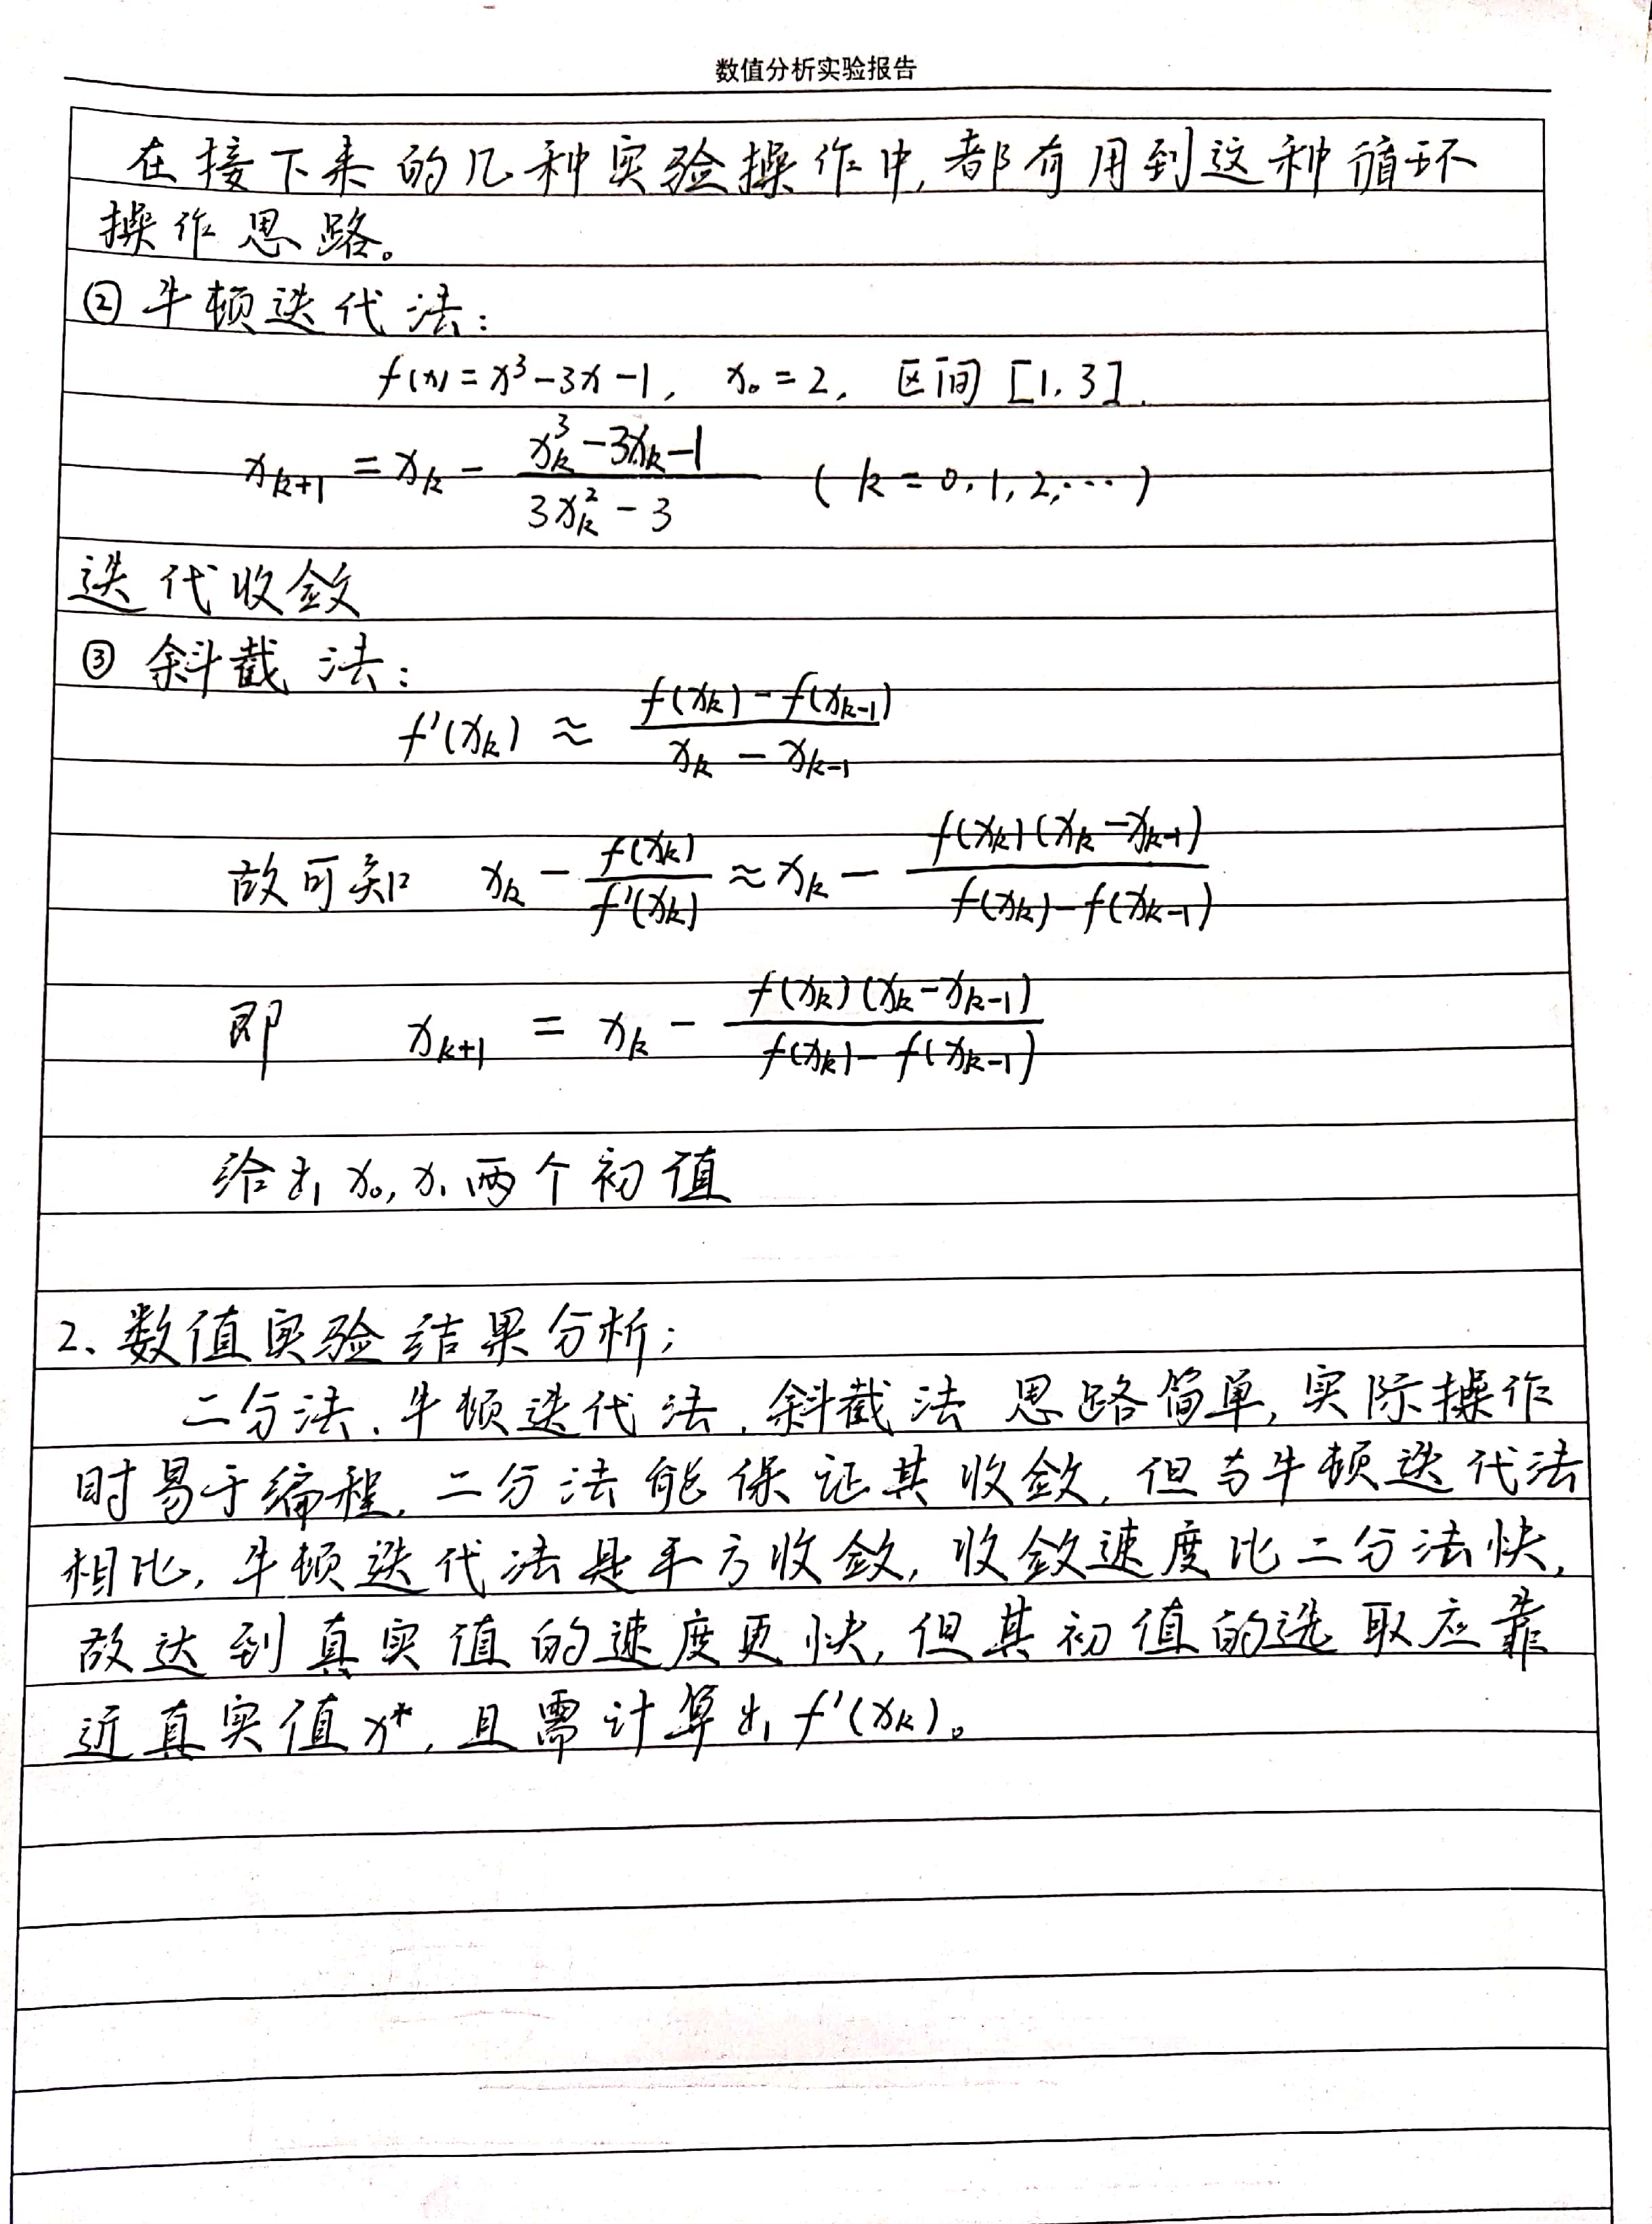 数值分析实验报告
在接下来的几种实验操作中,都有用到这种循环
操作思路。
② 牛顿迭代法:
f(x)=x³-3x-1, x₀=2, 区间[1,3].
xₖ₊₁ = xₖ - (xₖ³-3xₖ-1)/(3xₖ²-3) (k=0,1,2,…)
迭代收敛
③ 斜截法:
f'(xₖ) ≈ (f(xₖ)-f(xₖ₋₁))/(xₖ-xₖ₋₁)
故可知 xₖ - f(xₖ)/f'(xₖ) ≈ xₖ - f(xₖ)(xₖ-xₖ₋₁)/(f(xₖ)-f(xₖ₋₁))
即 xₖ₊₁ = xₖ - f(xₖ)(xₖ-xₖ₋₁)/(f(xₖ)-f(xₖ₋₁))
给出x₀,x₁两个初值
2、数值实验结果分析;
二分法、牛顿迭代法、斜截法 思路简单,实际操作
时易于编程,二分法能保证其收敛,但与牛顿迭代法
相比,牛顿迭代法是平方收敛,收敛速度比二分法快,
故达到真实值的速度更快,但其初值的选取应靠
近真实值x*,且需计算出f'(xₖ)。